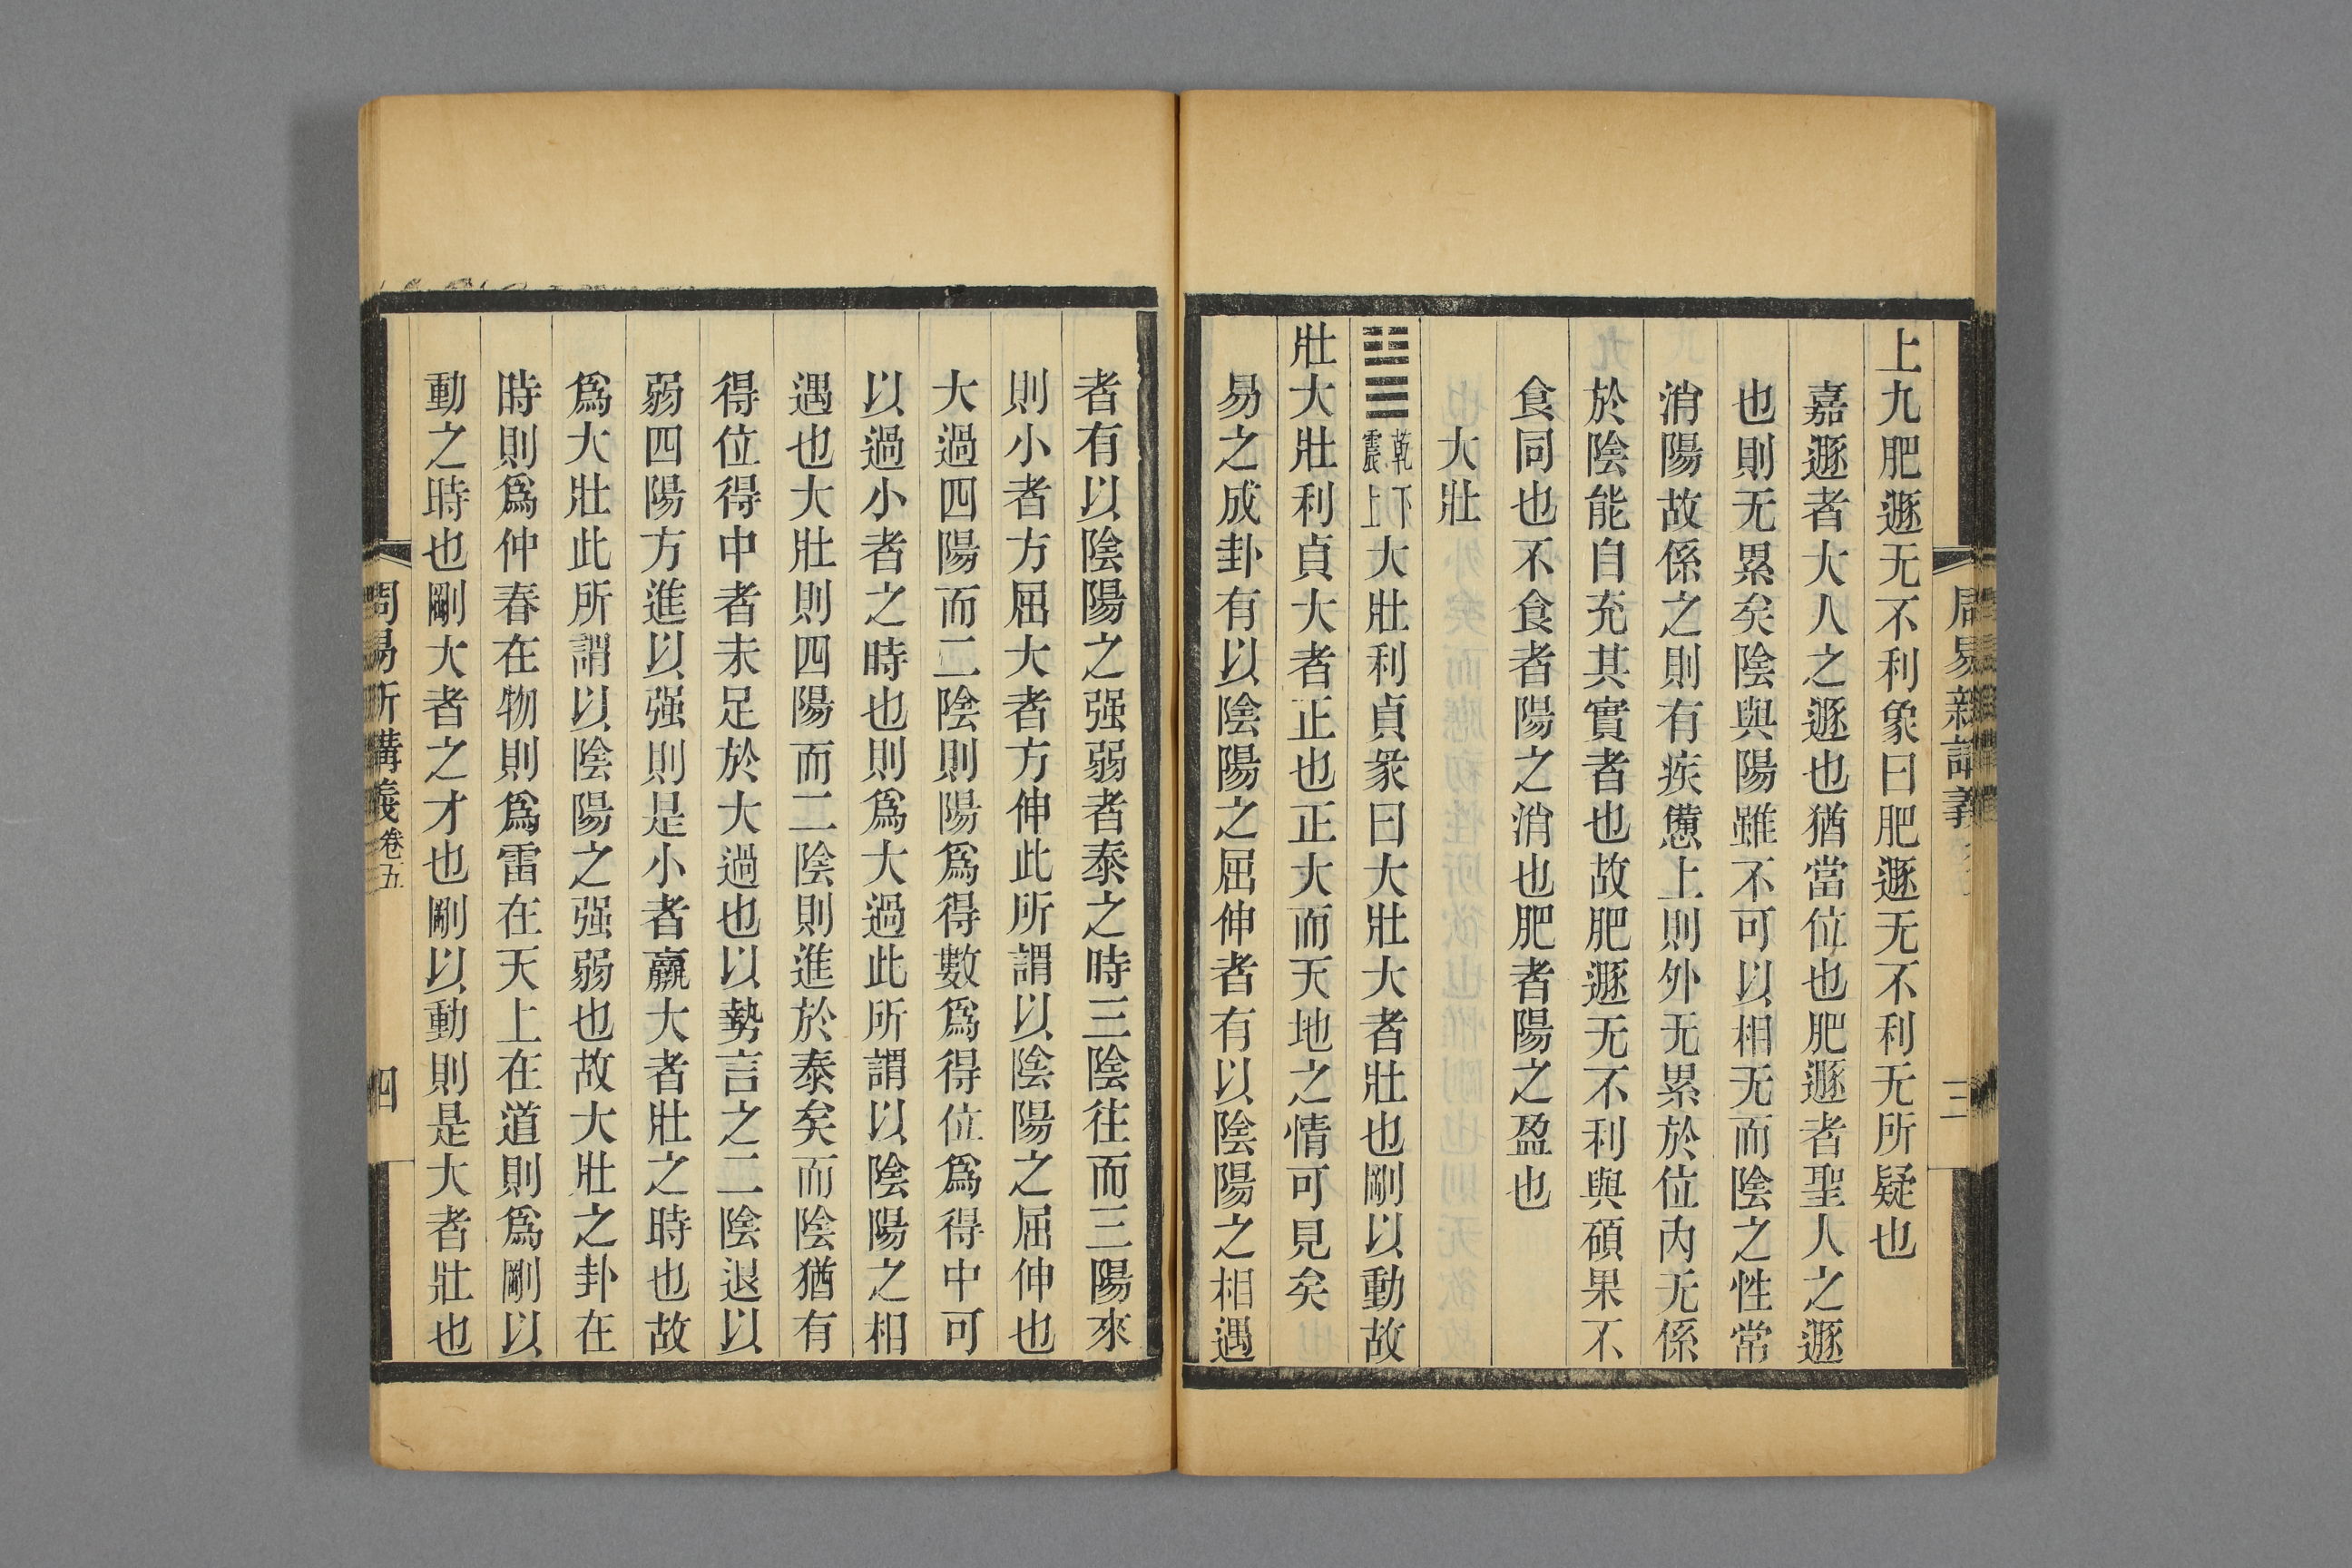 上九肥遯无不利象曰肥遯无不利无所疑也
嘉遯者大人之遯也猶當位也肥遯者聖人之遯
也則无累矣陰與陽雖不可以相无而陰之性常
消陽故係之則有疾憊上則外无累於位內无係
於陰能自充其實者也故肥遯无不利與碩果不
食同也不食者陽之消也肥者陽之盈也
大壯
䷡乾下震上大壯利貞彖曰大壯大者壯也剛以動故
壯大壯利貞大者正也正大而天地之情可見矣
易之成卦有以陰陽之屈伸者有以陰陽之相遇
者有以陰陽之强弱者泰之時三陰往而三陽來
則小者方屈大者方伸此所謂以陰陽之屈伸也
大過四陽而二陰則陽爲得數爲得位爲得中可
以過小者之時也則爲大過此所謂以陰陽之相
遇也大壯則四陽而二陰則進於泰矣而陰猶有
得位得中者未足於大過也以勢言之二陰退以
弱四陽方進以强則是小者羸大者壯之時也故
爲大壯此所謂以陰陽之强弱也故大壯之卦在
時則爲仲春在物則爲雷在天上在道則爲剛以
動之時也剛大者之才也剛以動則是大者壯也
周易新講義
三
周易新講義卷五
四